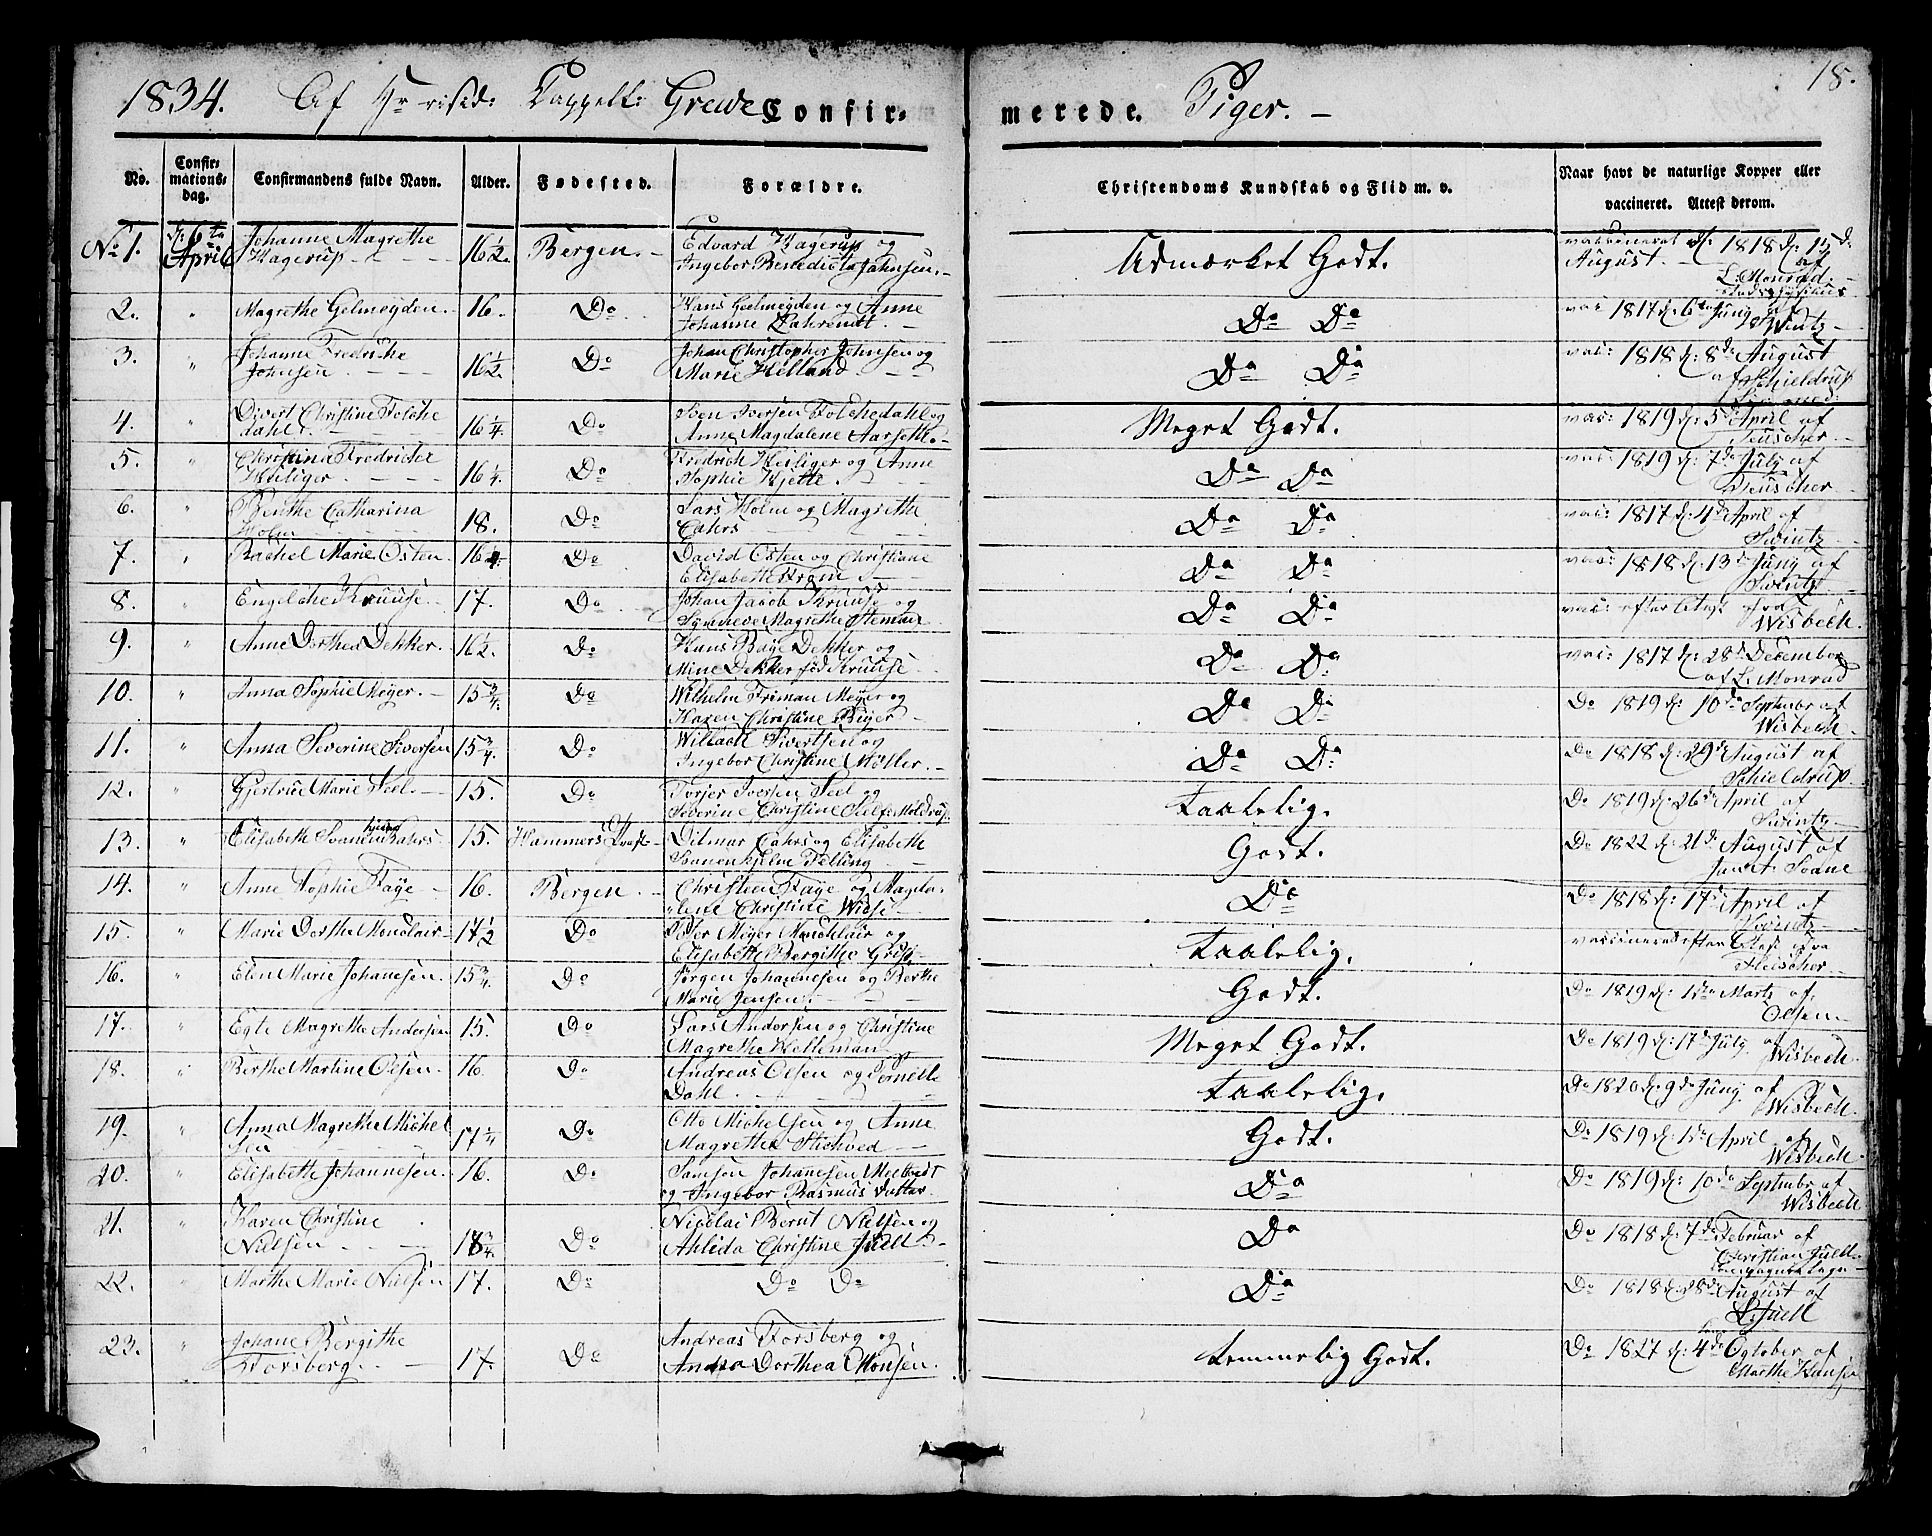 1834. Af Hr resid: Cappell: Greve Confir-
merede. Piger. —
18.
No. Confir-mations-dag. Confirmandens fulde Navn. Alder. Fødested. Forældre. Christendoms Kundskab og Flid m. v. Naar havt de naturlige Kopper eller vaccineret. Attest derom.
No 1. d: 6te April Johanne Magrethe Hagerup 16 1/2. Bergen. Edvard Hagerup og Ingebor Benedicta Jahnsen. Udmærket Godt. 1818 d: 15de August af L: Monrad
2. " Magrethe Gelmøyden. 16. Do Hans Geelmøyden og Anne Johanne Do Do vac: 1817 d: 6te Juny af Swintz
3. " Johanne Fredriche Johnsen 16 1/2. Do Johan Christopher Johnsen og Marie Hilland Do Do vac: 1818 d: 8de August af Schieldrup
4. " Divert Christine Folchedahl 16 1/4. Do Sven Iversen Folchedahl og Anne Magdalene Aarseth. Meget Godt. vac: 1819 d: 5te April af
5. " Christina Fredricke Heiliger 16 1/4. Do Fredrich Heiliger og Anne Sophie Hjette. Do Do vac: 1819 d: 7de July af
6. " Benthe Catharina Holm 18. Do Lars Holm og Magrethe Cahrs Do Do vac: 1817 d: 4de April af Swintz
7. " Rachel Marie Osten. 16 Do David Osten og Christiane Elisabeth Do Do vac: 1818 d: 13de Juny af Swintz
8. " Engelche Kruuse. 17. Do Johan Jacob Kruuse og Magrethe Do Do vac: efter Attest fra Wisbech.
9. " Anne Dorthea Dekker. 16 1/2. Do Hans Baye Dekker og Mine Dekker fød Kruuse Do Do vac: 1817 d: 28de December af L: Monrad
10. " Anna Sophie Meyer. 15 3/4. Do Wilhelm Friman Meyer og Karen Christine Beyer Do Do Do 1819 d: 10de Septembr af Wisbech
11. " Anna Severine Siversen 15 3/4. Do Willach Sivertsen og Ingebor Christine Møller. Do Do Do 1818 d: 29de August af Schieldrup.
12. " Gjertrue Marie Seel. 15. Do Torjer Iversen Seel og Severine Christine Taalelig. Do 1819 d: 26de April af Swintz
13. " Elisabeth Svanenhjelm Cahrs 15. Hammers Præst: Ditmar Cahrs og Elisabeth Svanenhjelm Telling Godt. Do 1822 d: 21de August af Svane
14. " Anne Sophie Faye 16. Bergen Christeen Faye og Magdalene Christine Wiese Do Do 1818 d: 17de April af Swintz
15. " Marie Dorthe Monclair 17 1/2 Do Peder Meyer Monclair og Elisabeth Bergithe Taalelig. vaccineret efter Attest fra Fleischer
16. " Elen Marie Johanesen. 15 3/4. Do Jørgen Johannesen og Berthe Marie Jensen. Godt. Do 1819 d: 1ste Marts af Olsen
17. " Egte Magrethe Andersen 15. Do Lars Andersen og Christine Magrethe Helleman Meget Godt. Do 1819 d: 17de July af Wisbech.
18. " Berthe Martine Olsen. 16. Do Andreas Olsen og Pernelle Dahl. Taalelig. Do 1820 d: 9de Juny af Wisbech.
19. " Anna Magrethe Michelsen 17 1/4 Do Otto Michelsen og Anne Magrethe Stichved Godt. Do 1819 d: 1ste April af Wisbech.
20. " Elisabeth Johannesen. 16. Do Samson Johanesen og Ingebor Rasmus datter Do Do 1819 d: 10de Septembr af Wisbech
21. " Karen Christine Nielsen 18 3/4. Do Nicolai Berut Nielsen og Ahlida Christine Juell. Do Do 1818 d: 7de Februar af Christian Juell.
22. " Marthe Marie Nielsen 17. Do Do Do Do Do 1818 d: 28de August af Juell
23. " Johane Bergithe Forsberg. 17. Do Andreas Forsberg og Anna Dorthea Monsen. temmelig Godt. Do 1827 d: 4de October af Marthe Hansen